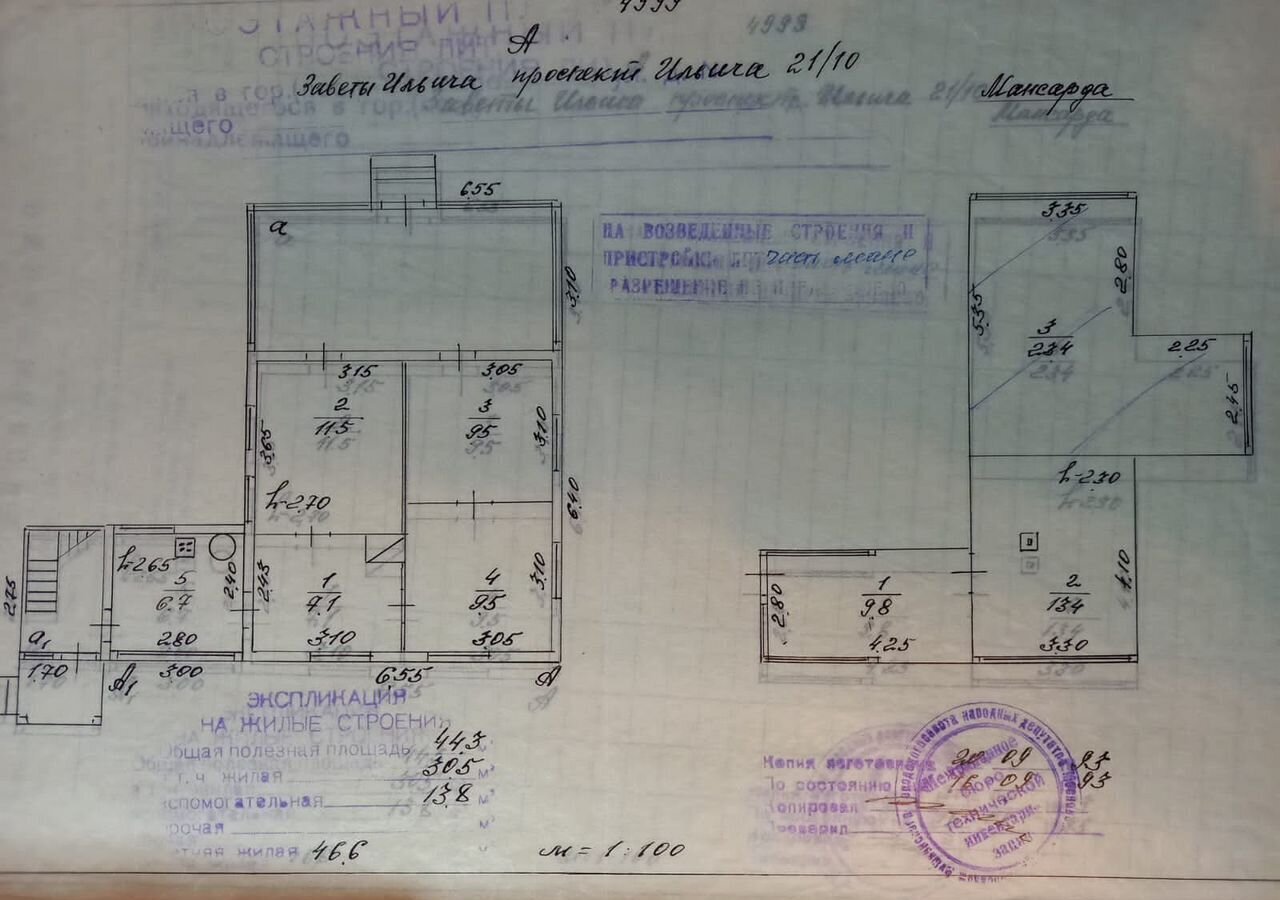 4999
ЭТАЖНЫЙ П
4999
СТРОЕНИЯ ЛИ
А
Заветы Ильича проспект Ильича 21/10
Мансарда
я в гор.
щего
6.55
а
3.35
НА ВОЗВЕДЕННЫЕ СТРОЕНИЯ И
ПРИСТРОЙКИ ЛИТ часть мансар
РАЗРЕШЕНИЕ НЕ
3.10
2.80
5.35
3
23.4
2.25
2.45
3.15
3.05
2
11.5
3
9.5
3.65
3.10
h-2.70
6.40
h-2.30
h-2.65
5
6.7
2.40
2.45
1
7.1
4
9.5
3.10
2.75
2.80
3.10
3.05
а1
1.70
А1
3.00
6.55
А
1
9.8
2.80
4.25
2
13.4
4.10
3.30
ЭКСПЛИКАЦИЯ
НА ЖИЛЫЕ СТРОЕНИЯ
Общая полезная площадь 44.3
т.ч жилая 30.5 м²
спомогательная 13.8 м²
рочая м²
етняя жилая 46.6
м = 1:100
Копия изготов 09 93
По состоянию 16 09 93
Копировал
Проверил
народных депутатов
бюро
технической
инвентари-
зации